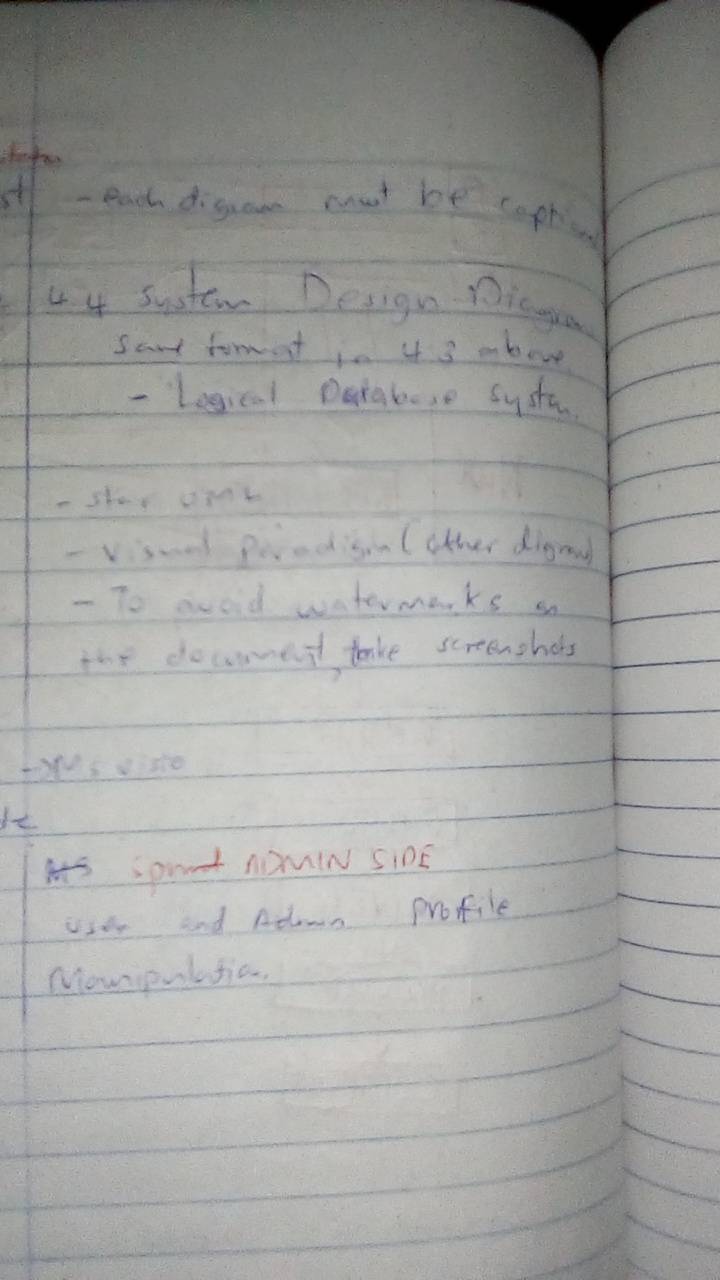 - each digram must be caption
4.4 System Design Diagram
same format in 4.3 above
- Logical Database system
- star UML
- Visual Paradigm (other digram)
- To avoid watermarks on
the document, take screenshots
- Ms visio
sprint ADMIN SIDE
user and Admin Profile
Manipulation.